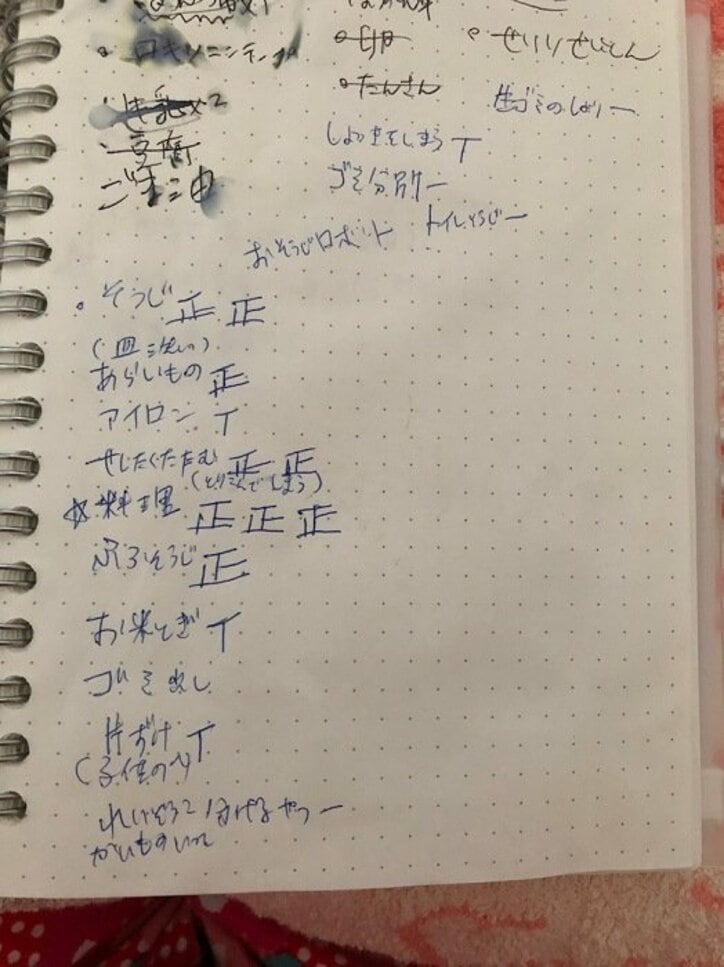 ロキソニンテープ
牛乳×2
豆腐
ごま油
卵
たんさん
せいりせいとん
生ゴミのしょりー
しょっきをしまう T
ゴミ分別 一
トイレそうじ 一
おそうじロボット
そうじ 正 正
(皿洗い)
あらいもの 正
アイロン T
せんたくたたむ 正 正
(とりこんでしまう)
☆料理 正 正 正
ふろそうじ 正
お米とぎ T
ゴミ出し
片づけ T
(子供の)
れいぞうこ 一
かいもの